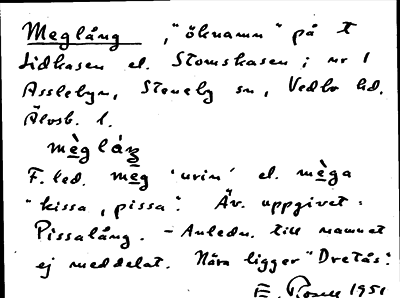 Meglång, "öknamn" på t
Lidkasen el. Stomskasen; nr 1
Asslebyn, Steneby sn, Vedbo hd.
Älvsb. l.
mèg láŋ
F. led. meg 'urin' el. mèga
"kissa, pissa". Äv. uppgivet:
Pissalång. - Anledn. till namnet
ej meddelat. Nära ligger "Dretås".
E. 1951